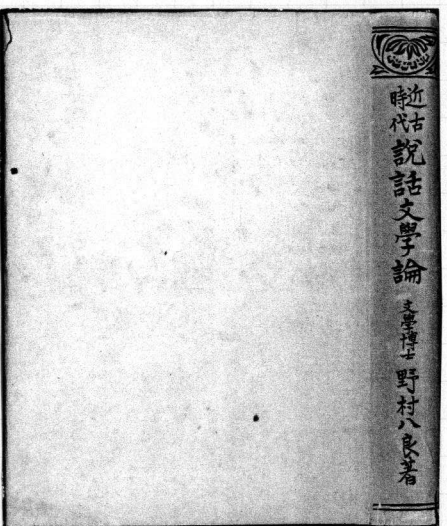 近古時代說話文學論 文學博士 野村八良著